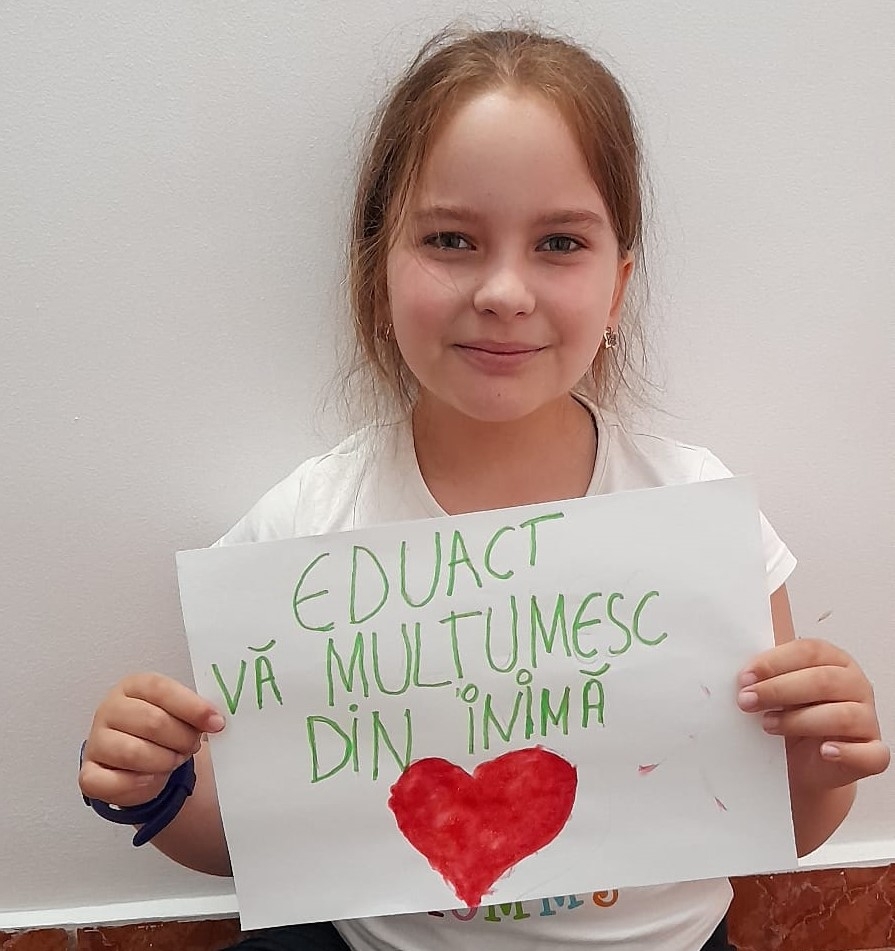 EDUACT
VĂ MULȚUMESC
DIN INIMĂ